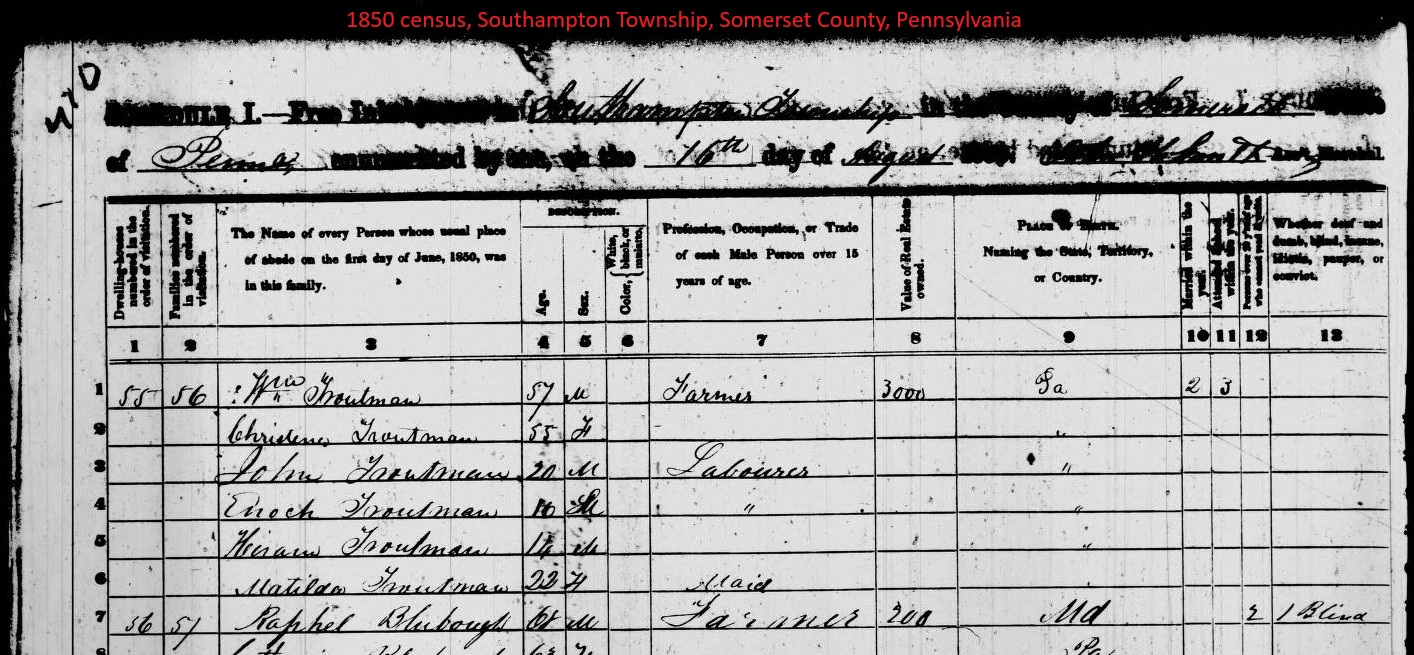 1850 census, Southampton Township, Somerset County, Pennsylvania
SCHEDULE I.—Free Inhabitants in Southampton Township in the County of Somerset State
of Penna, enumerated by me, on the 16th day of August 1850. Ass't Marshal.
Dwelling-houses numbered in the order of visitation.
Families numbered in the order of visitation.
The Name of every Person whose usual place of abode on the first day of June, 1850, was in this family.
DESCRIPTION.
Age.
Sex.
Color, { White, black, or mulatto.
Profession, Occupation, or Trade of each Male Person over 15 years of age.
Value of Real Estate owned.
PLACE OF BIRTH. Naming the State, Territory, or Country.
Married within the year.
Attended School within the year.
Persons over 20 y'rs of age who cannot read & write.
Whether deaf and dumb, blind, insane, idiotic, pauper, or convict.
1 2 3 4 5 6 7 8 9 10 11 12 13
1 55 56 Wm Troutman 57 M Farmer 3000 Pa 2 3
2 Christena Troutman 55 F "
3 John Troutman 20 M Labourer "
4 Enoch Troutman M " "
5 Hiram Troutman M "
6 Matilda Troutman 22 F Maid
7 56 57 Raphel Blubough M Farmer 200 Md 2 1 Blind
8 Pa